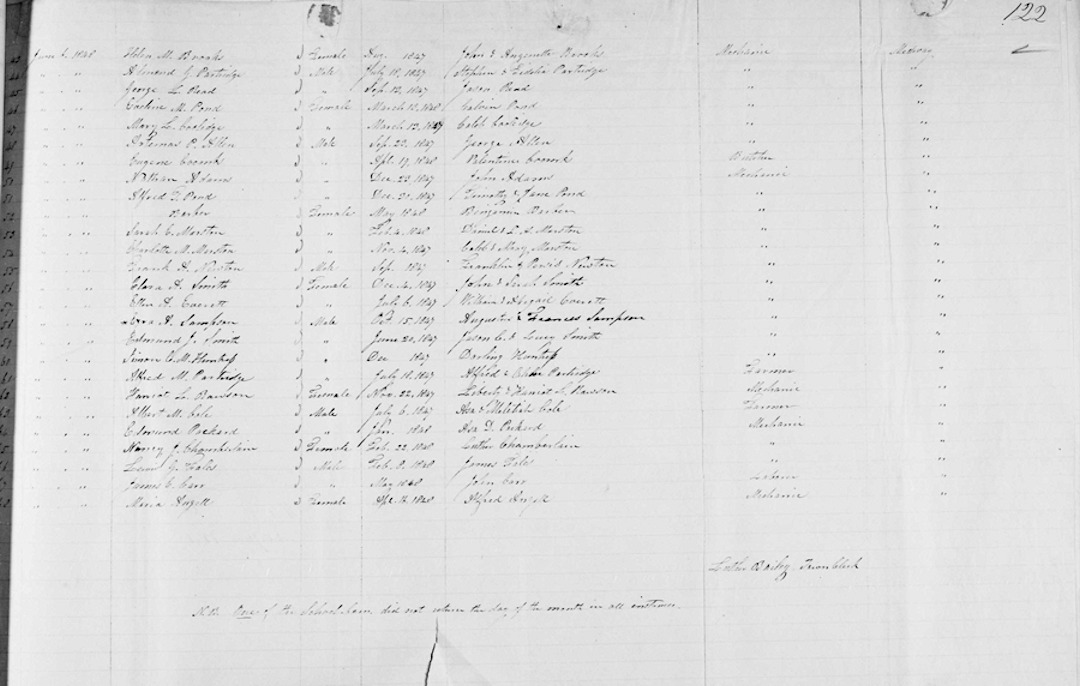 122
June 1, 1848 Helen M. Brooks Female Aug. 1847 John & Angenette Brooks Mechanic Medway
" " " Almond J. Partridge Male July 18, 1847 Stephen & Partridge " "
" " " George L. Read " Sep. 12, 1847 Jason Read " "
" " " M. Pond Female March 13, 1848 Calvin Pond " "
" " " Mary L. Coolidge " March 13, 1847 Caleb Coolidge " "
" " " Artemas P. Allen Male Sep. 22, 1847 George Allen " "
" " " Eugene Coomb " Apl. 17, 1848 Valentine Coomb Butcher "
" " " Nathan Adams " Dec. 23, 1847 John Adams Mechanic "
" " " Alfred T. Pond " Dec. 20, 1847 Timothy & Jane Pond " "
" " " Barber Female May 1848 Benjamin Barber " "
" " " Sarah E. Morston " Feb. 4, 1848 Daniel & L. A. Morston " "
" " " Charlotte M. Morston " Nov. 4, 1847 Caleb & Mary Morston " "
" " " Frank A. Newton Male Sep. 1847 Franklin & Newton " "
" " " Clara A. Smith Female Dec. 4, 1847 John & Sarah Smith " "
" " " Ellen A. Everett " July 6, 1847 William & Abigail Everett " "
" " " Ezra H. Sampson Male Oct. 15, 1847 Augustus & Frances Sampson " "
" " " Edmund J. Smith " June 20, 1847 Jason C. & Lucy Smith " "
" " " Simon C. M. " Dec 1847 " "
" " " Alfred M. Partridge " July 18, 1847 Alfred & Partridge Farmer "
" " " Harriot L. Rawson Female Nov. 22, 1847 & Harriot L. Rawson Mechanic "
" " " Albert M. Cole Male July 6, 1847 Asa & Cole Farmer "
" " " Edmund Packard " Jan. 1848 Asa D. Packard Mechanic "
" " " Nancy J. Chamberlain Female Feb. 22, 1848 Luther Chamberlain " "
" " " Lewis G. Fales Male Feb. 8, 1848 James Fales " "
" " " James E. Carr " May 1848 John Carr Laborer "
" " " Maria Angell Female Apl. 12, 1848 Alfred Angell Mechanic "
Luther Bailey Town Clerk
N.B. One of the School did not return the day of the month in all instances.